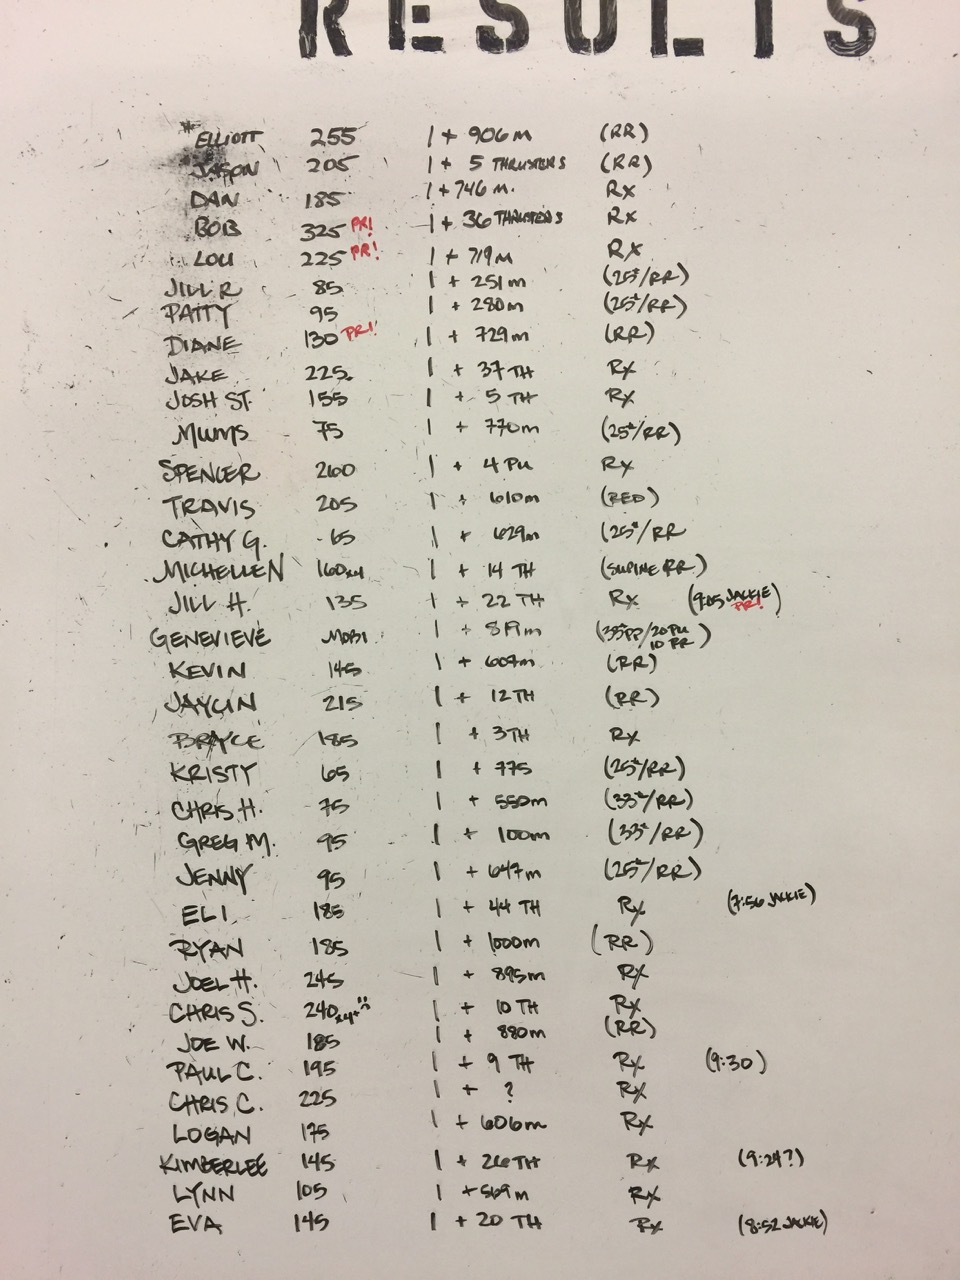 RESULTS
ELLIOTT 255 1 + 906m (RR)
JASON 205 1 + 5 THRUSTERS (RR)
DAN 185 1 + 746 M. Rx
BOB 325 PR! 1 + 36 THRUSTERS Rx
LOU 225 PR! 1 + 719m Rx
JILL R 85 1 + 251m (25#/RR)
PATTY 95 1 + 280m (25#/RR)
DIANE 130 PR! 1 + 729m (RR)
JAKE 225 1 + 37 TH Rx
JOSH ST. 155 1 + 5 TH Rx
MUMS 75 1 + 770m (25#/RR)
SPENCER 200 1 + 4 PU Rx
TRAVIS 205 1 + 610m (RED)
CATHY G. 65 1 + 629m (25#/RR
MICHELLE N 160x4 1 + 14 TH (SUPINE RR)
JILL H. 135 1 + 22 TH Rx (9:05 JACKIE PR!)
GENEVIEVE MOBI 1 + 819m (35PP/20 PU 10 RR)
KEVIN 145 1 + 604m (RR)
JAYLIN 215 1 + 12 TH (RR)
BRAYCE 185 1 + 3 TH Rx
KRISTY 65 1 + 775 (25#/RR)
CHRIS H. 75 1 + 550m (33#/RR)
GREG M. 95 1 + 100m (33#/RR)
JENNY 95 1 + 647m (25#/RR)
ELI 185 1 + 44 TH Rx (7:56 JACKIE)
RYAN 185 1 + 1000m (RR)
JOEL H. 245 1 + 895m Rx
CHRIS S. 240x4+ 1 + 10 TH Rx
JOE W. 185 1 + 880m (RR)
PAUL C. 195 1 + 9 TH Rx (9:30)
CHRIS C. 225 1 + ? Rx
LOGAN 175 1 + 606m Rx
KIMBERLEE 145 1 + 26 TH Rx (9:24?)
LYNN 105 1 + 569m Rx
EVA 145 1 + 20 TH Rx (8:52 JACKIE)